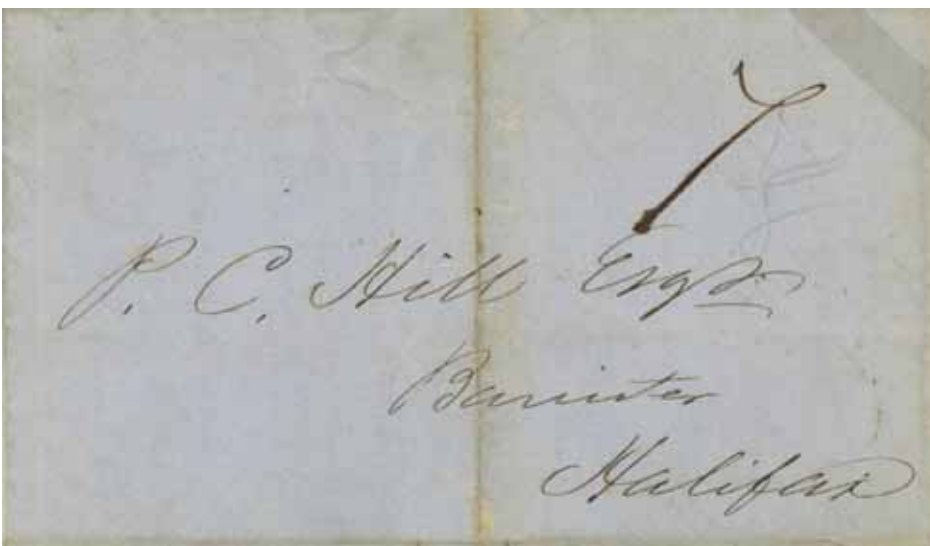 7
P. C. Hill Esqr
Barrister
Halifax